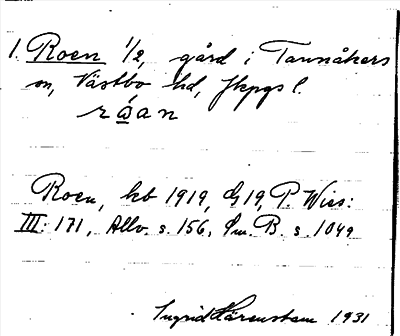 1. Roen 1/2, gård i Tannåkers
sn, Västbo hd, Jkpgs l.
råan
Roen, kb 1919, G 19, P. Wies:
III: 171, Allv. s. 156, Sm. B. s. 1049
Ingrid Härenstam 1931